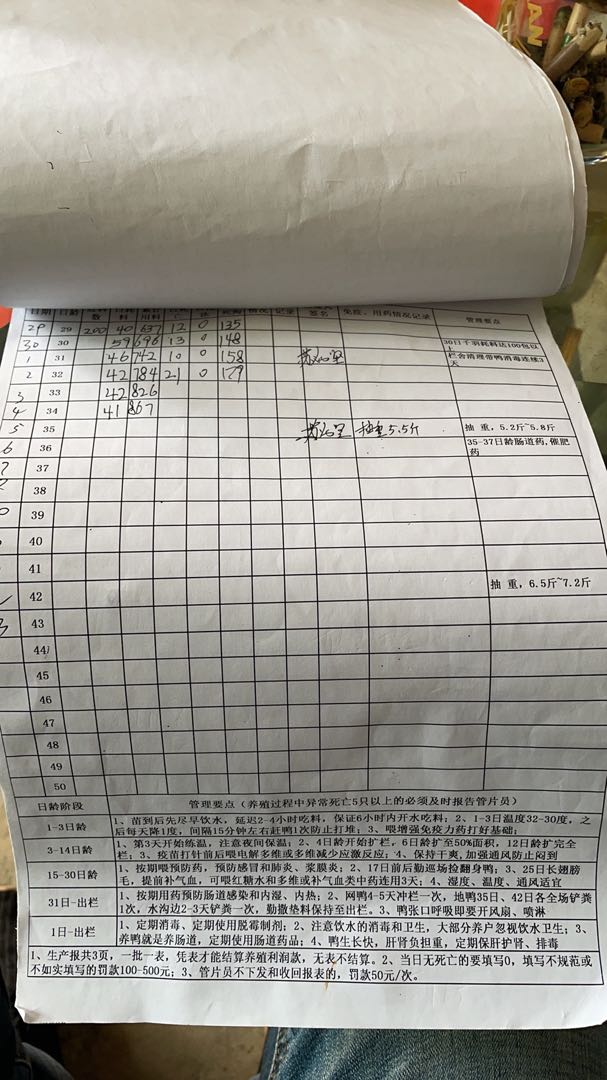 AN
日期 日龄 数 料 用料 淘 情况 记录 签名 免疫、用药情况记录 管理要点
29 29 200 40 637 12 0 135
30 30 59 696 13 0 148 30日千羽耗料达100包以上
1 31 46 742 10 0 158 栏舍清理带鸭消毒连续3天
2 32 42 784 21 0 179
3 33 42 826
4 34 41 867
5 35 抽重5.5斤 抽 重，5.2斤~5.8斤
6 36 35-37日龄肠道药,催肥药
7 37
38
39
40
41
42 抽 重，6.5斤~7.2斤
3 43
44
45
46
47
48
49
50
日龄阶段 管理要点（养殖过程中异常死亡5只以上的必须及时报告管片员）
1-3日龄 1、苗到后先尽早饮水，延迟2-4小时吃料，保证6小时内开水吃料；2、1-3日温度32-30度，之
后每天降1度，间隔15分钟左右赶鸭1次防止打堆；3、喂增强免疫力药打好基础；
3-14日龄 1、第3天开始练温，注意夜间保温；2、4日龄开始扩栏，6日龄扩至50%面积，12日龄扩完全
栏；3、疫苗打针前后喂电解多维或多维减少应激反应；4、保持干爽,加强通风防止闷到
15-30日龄 1、按期喂预防药，预防感冒和肺炎、浆膜炎；2、17日前后勤巡场捡翻身鸭；3、25日长翅膀
毛，提前补气血，可喂红糖水和多维或补气血类中药连用3天；4、湿度、温度、通风适宜
31日-出栏 1、按期用药预防肠道感染和内湿、内热；2、网鸭4-5天冲栏一次，地鸭35日、42日各全场铲粪
1次，水沟边2-3天铲粪一次，勤撒垫料保持至出栏。3、鸭张口呼吸即要开风扇、喷淋
1日-出栏 1、定期消毒、定期使用脱霉制剂；2、注意饮水的消毒和卫生，大部分养户忽视饮水卫生；3、
养鸭就是养肠道，定期使用肠道药品；4、鸭生长快，肝肾负担重，定期保肝护肾、排毒
1、生产报共3页，一批一表，凭表才能结算养殖利润款，无表不结算。2、当日无死亡的要填写0，填写不规范或
不如实填写的罚款100-500元；3、管片员不下发和收回报表的，罚款50元/次。